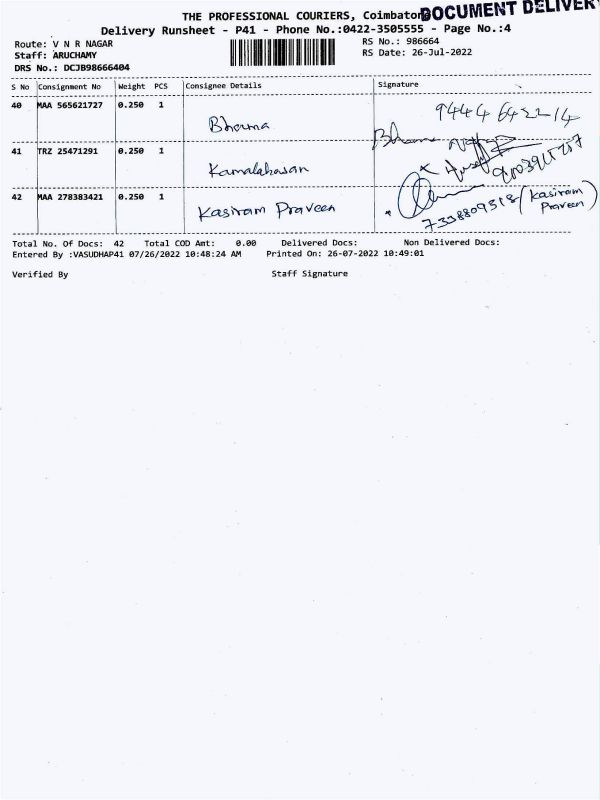 DOCUMENT DELIVERY
THE PROFESSIONAL COURIERS, Coimbatore
Delivery Runsheet - P41 - Phone No.:0422-3505555 - Page No.:4
Route: V N R NAGAR RS No.: 986664
Staff: ARUCHAMY RS Date: 26-Jul-2022
DRS No.: DCJB98666404
S No Consignment No Weight PCS Consignee Details Signature
40 MAA 565621727 0.250 1 Bhouma
41 TRZ 25471291 0.250 1 Kamalahasan
42 MAA 278383421 0.250 1 Kasiram Praveen 7338809318 (Kasiram Praveen)
Total No. Of Docs: 42 Total COD Amt: 0.00 Delivered Docs: Non Delivered Docs:
Entered By :VASUDHAP41 07/26/2022 10:48:24 AM Printed On: 26-07-2022 10:49:01
Verified By Staff Signature